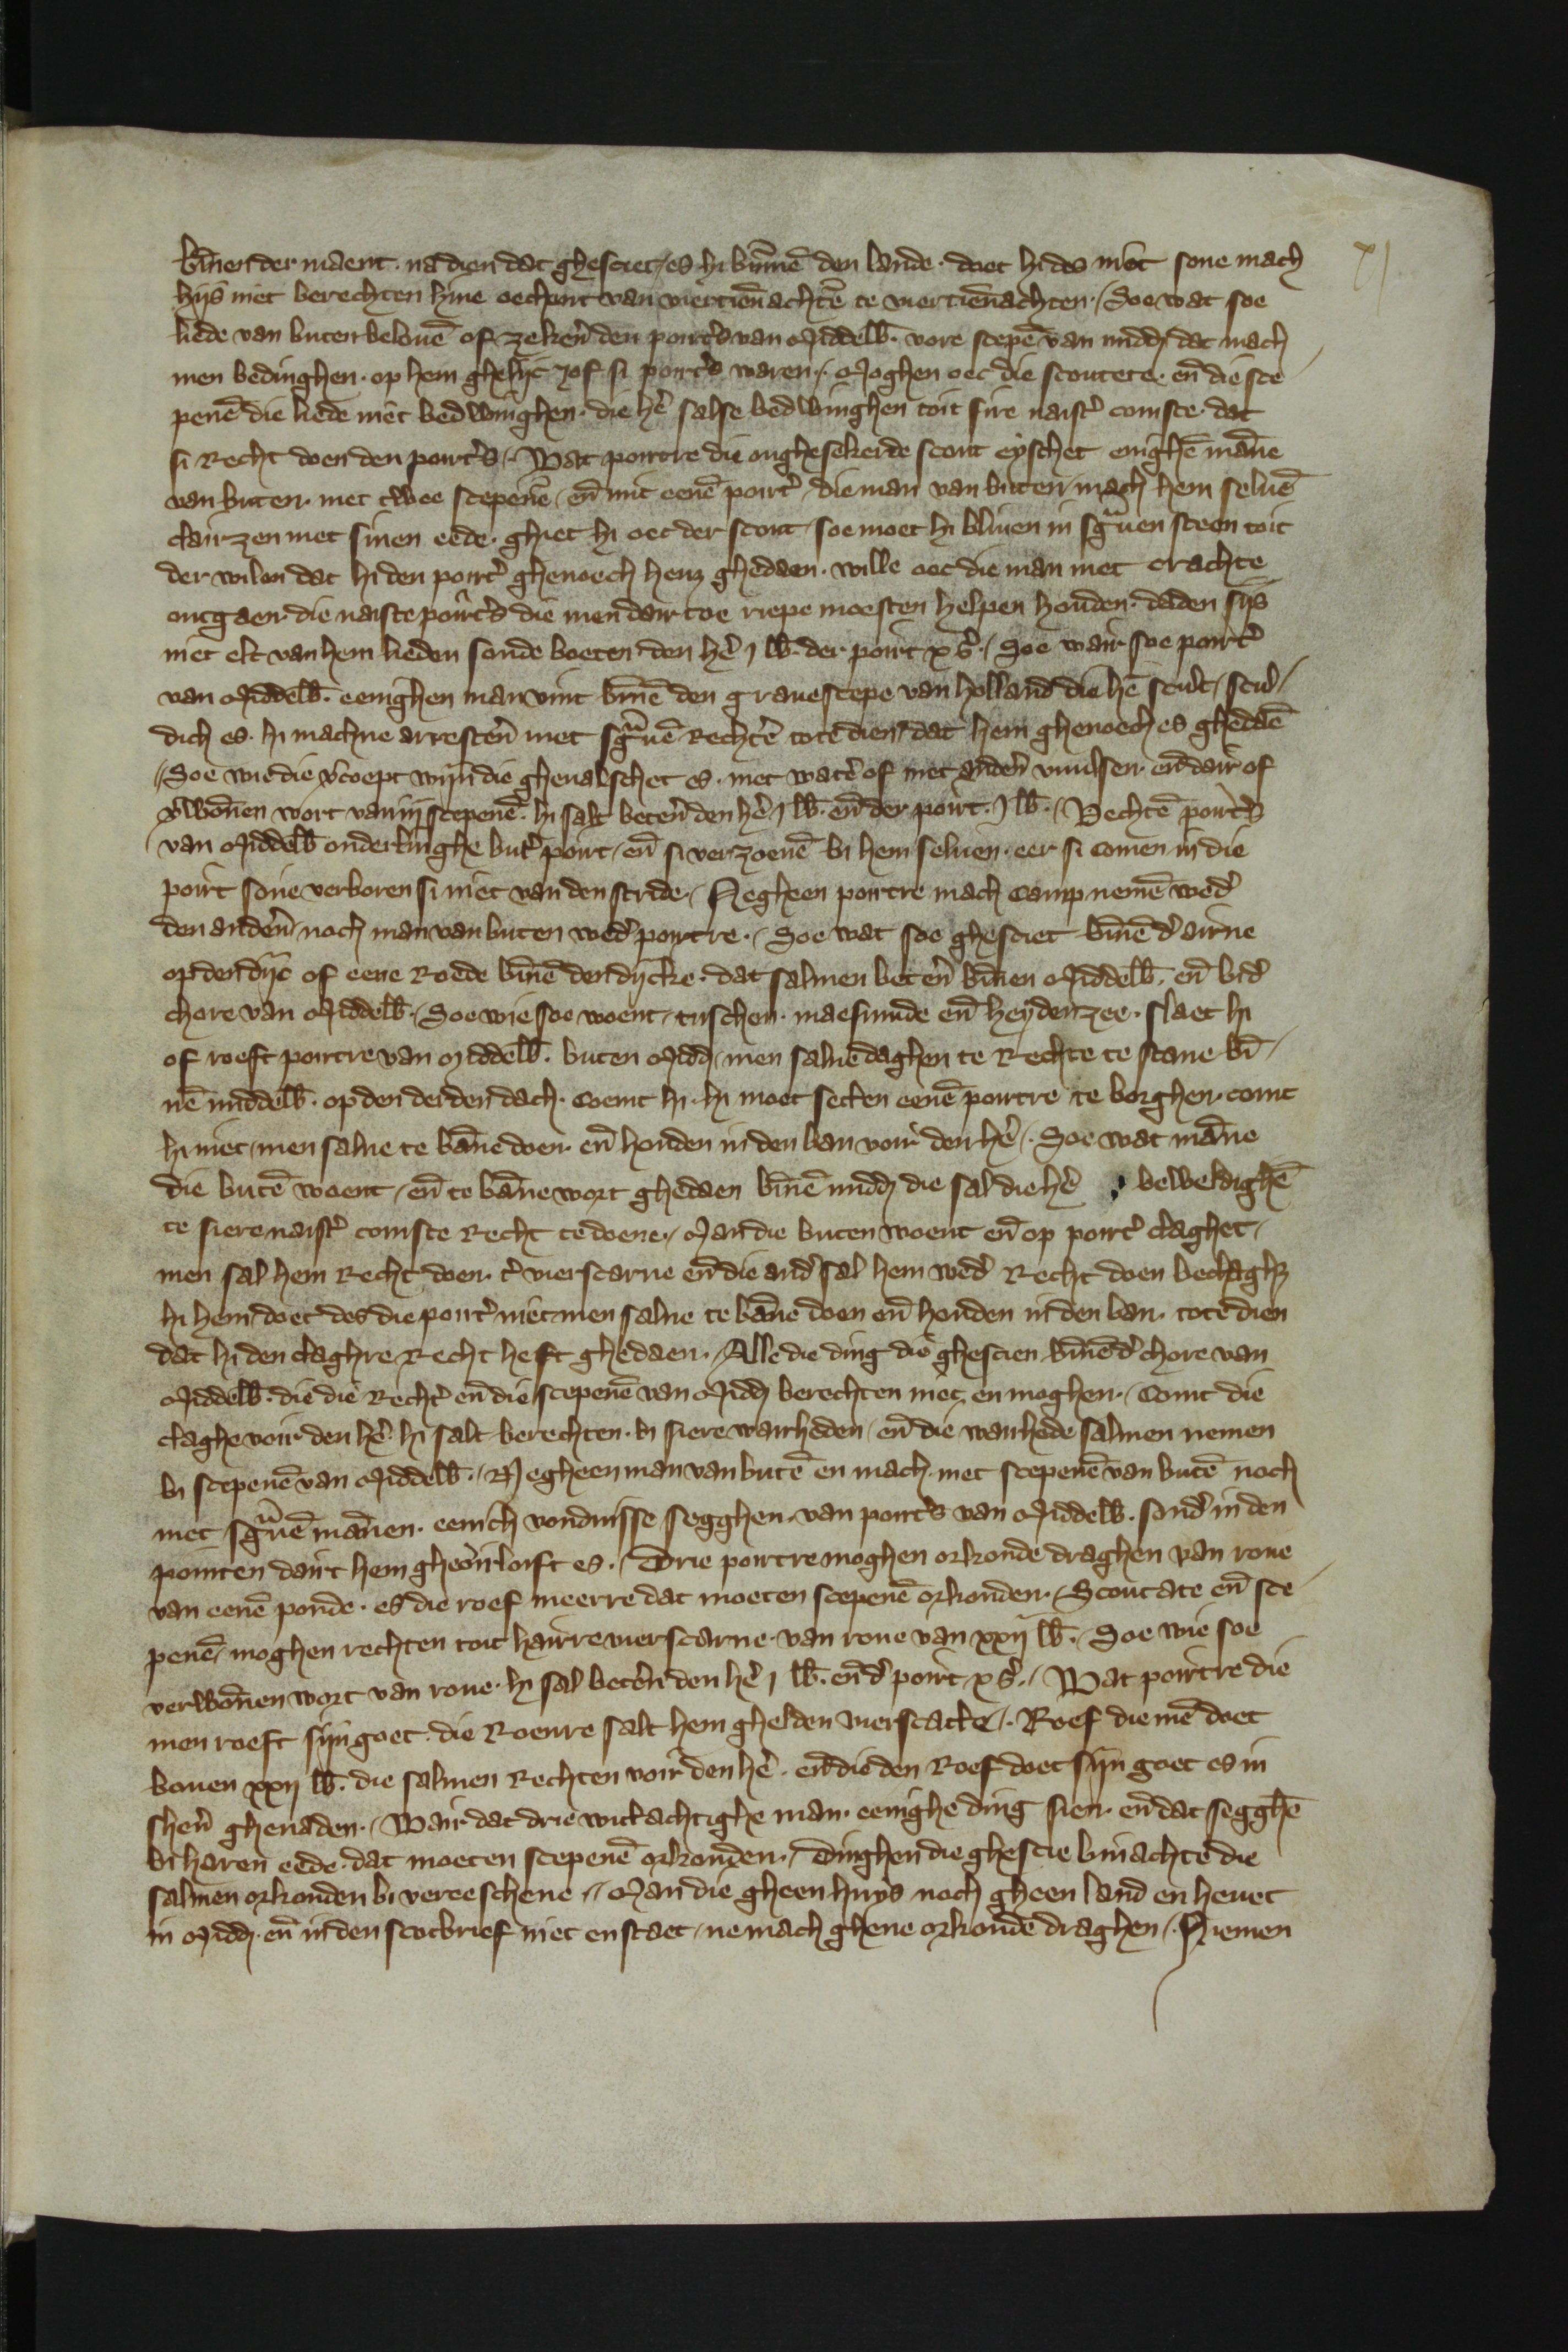 xj
bīnen der maent. na dien dat ghesciet / es hi bīnnē den lande. doet hi des niet sone mach
hijs niet berechten hine oechent van viertienachtē te viertienachten. / Soe wat soe
liede van buten belouē of zekerē den poirtˢ van Middelb̄. vore scepē van midd̄ dat mach
men bedinghen. op hem ghelijc zof si poirtˢ waren /. Moghen oec die scoutete. en̄ die sce
penē die liede niet bedwinghen. die hē salse bedwinghen toit sire naistˀ comste. dat
si Recht doen den poirtˢ /. Wat poirtre die onghesekerde scout eyschet enighē māne
van buten. met twee scepenē / en̄ mit eenē poirtˀ / die man van buten mach hem seluē
clairzen met sinen eede. ghiet hi oec der scout / soe moet hi bliuen in sḡuen steen toit
der wilen dat hi den poirtˀ ghenoech heuꝫ ghedaen. wille oec die man met crachte
ontgaen die naiste poirtˢ die men dair toe riepe moesten helpen houden. daden sijs
niet elc van hem lieden soude boeten den hē j lb̄. der poirt x s̄. / Soe wair soe poirtˀ
van Middelb̄. eenighen man vint bīnē den grauescepe van holland die hē scult / scul /
dich es. hi machne arresterē met sḡuē Rechtē tote dien dat hem ghenoech es ghedaē
/ Soe wie die vˀcoept wijn die gheualschet es. met watˀ of met anderē vuulsen. en̄ dair of
vˀwōnen wort van iij scepenē. hi salt beterē den hē j lb̄. en̄ der poirt. j lb̄. / Vechtē poirtˢ
van Middelb̄ onderlinghe butˀ poirt / en̄ si verzoenē bi hem seluen. eer si comen in die
poirt sone verboren si niet van den stride. / Negheen poirtre mach camp nemē wedˀ
den anderē noch man van buten wedˀ poirtre. / Soe wat soe ghesciet bīnē dˀ airne
op den dijc of eene Roede bīnē den dijcke. dat salmen beterē bīnen Middelb̄. en̄ bi dˀ
chore van Middelb̄. / Soe wie soe woent / tuschen. maesmude en̄ heydenzee. slaet hi
of roeft poirtre van Middelb̄. buten Midd̄ / men salnē daghen te Rechte te stane bī /
nē middelb̄. op den derden dach. Coemt hi. hi moet setten eenē poirtre te borghen. comt
hi niet / men salne te bāne doen. en̄ houden in den ban voir den hē /. Soe wat māne
die butē woent / en̄ te bāne wort ghedaen bīnē midd̄ die sal die hē beweldighē
te siere naistˀ comste Recht te doene. / Man die buten woent en̄ op poirtˀ claghet /
men sal hem Recht doen. tˀ vierscarne en̄ die andˀ sal hem wedˀ Recht doen beclaghꝫ
hi hem doet des die poirtˀ niet men salne te bāne doen en̄ houden in den ban. tote dien
dat hi den claghre Recht heft ghedaen. / Alle die ding die ghescien bīnē dˀ chore van
Middelb̄. die die Rechtˀ en̄ die scepenē van Midd̄ berechten niet en moghen. / Comt die
claghe voir den hē. hi salt berechten. bi siere wairheden / en̄ die wairhede salmen nemen
bi scepenē van Middelb̄. / Negheen man van butē en mach. met scepenē van butē noch
met sḡuē mānen. eenich vondnisse segghen. van poirtˢ van Middelb̄. sondˀ in den
pointen dair̄t hem gheoirloift es. / Drie poirtre moghen orkonde draghen van roue
van eenē ponde. es die roef meerre dat moeten scepenē orkonden. / Scoutate en̄ sce
penē / moghen rechten toit hairre vierscarne. van roue van xxij lb̄. / Soe wie soe
verwōnen wort van roue. hi sal beterē den hē j lb̄. en̄ dˀ poirt x s̄. / Wat poirtre die
men roeft sijn goet. die Roeure salt hem ghelden vierscatte /. Roef die mē doet
bouen xxij lb̄. die salmen Rechten voir den hē. en̄ die den Roef doet sijn goet es in
sherē ghenaden. / Wair dat drie witachtighe man. eenighe ding sien. en̄ dat segghē
bi haren eede. dat moeten scepenē orkonden. / Dinghen die ghescie binachte die
salmen orkonden bi vereeschene // Man die gheen huys noch gheen land en heuet
in Midd̄. en̄ in den scotbrief niet en staet / ne mach ghene orkonde draghen /. Niemen